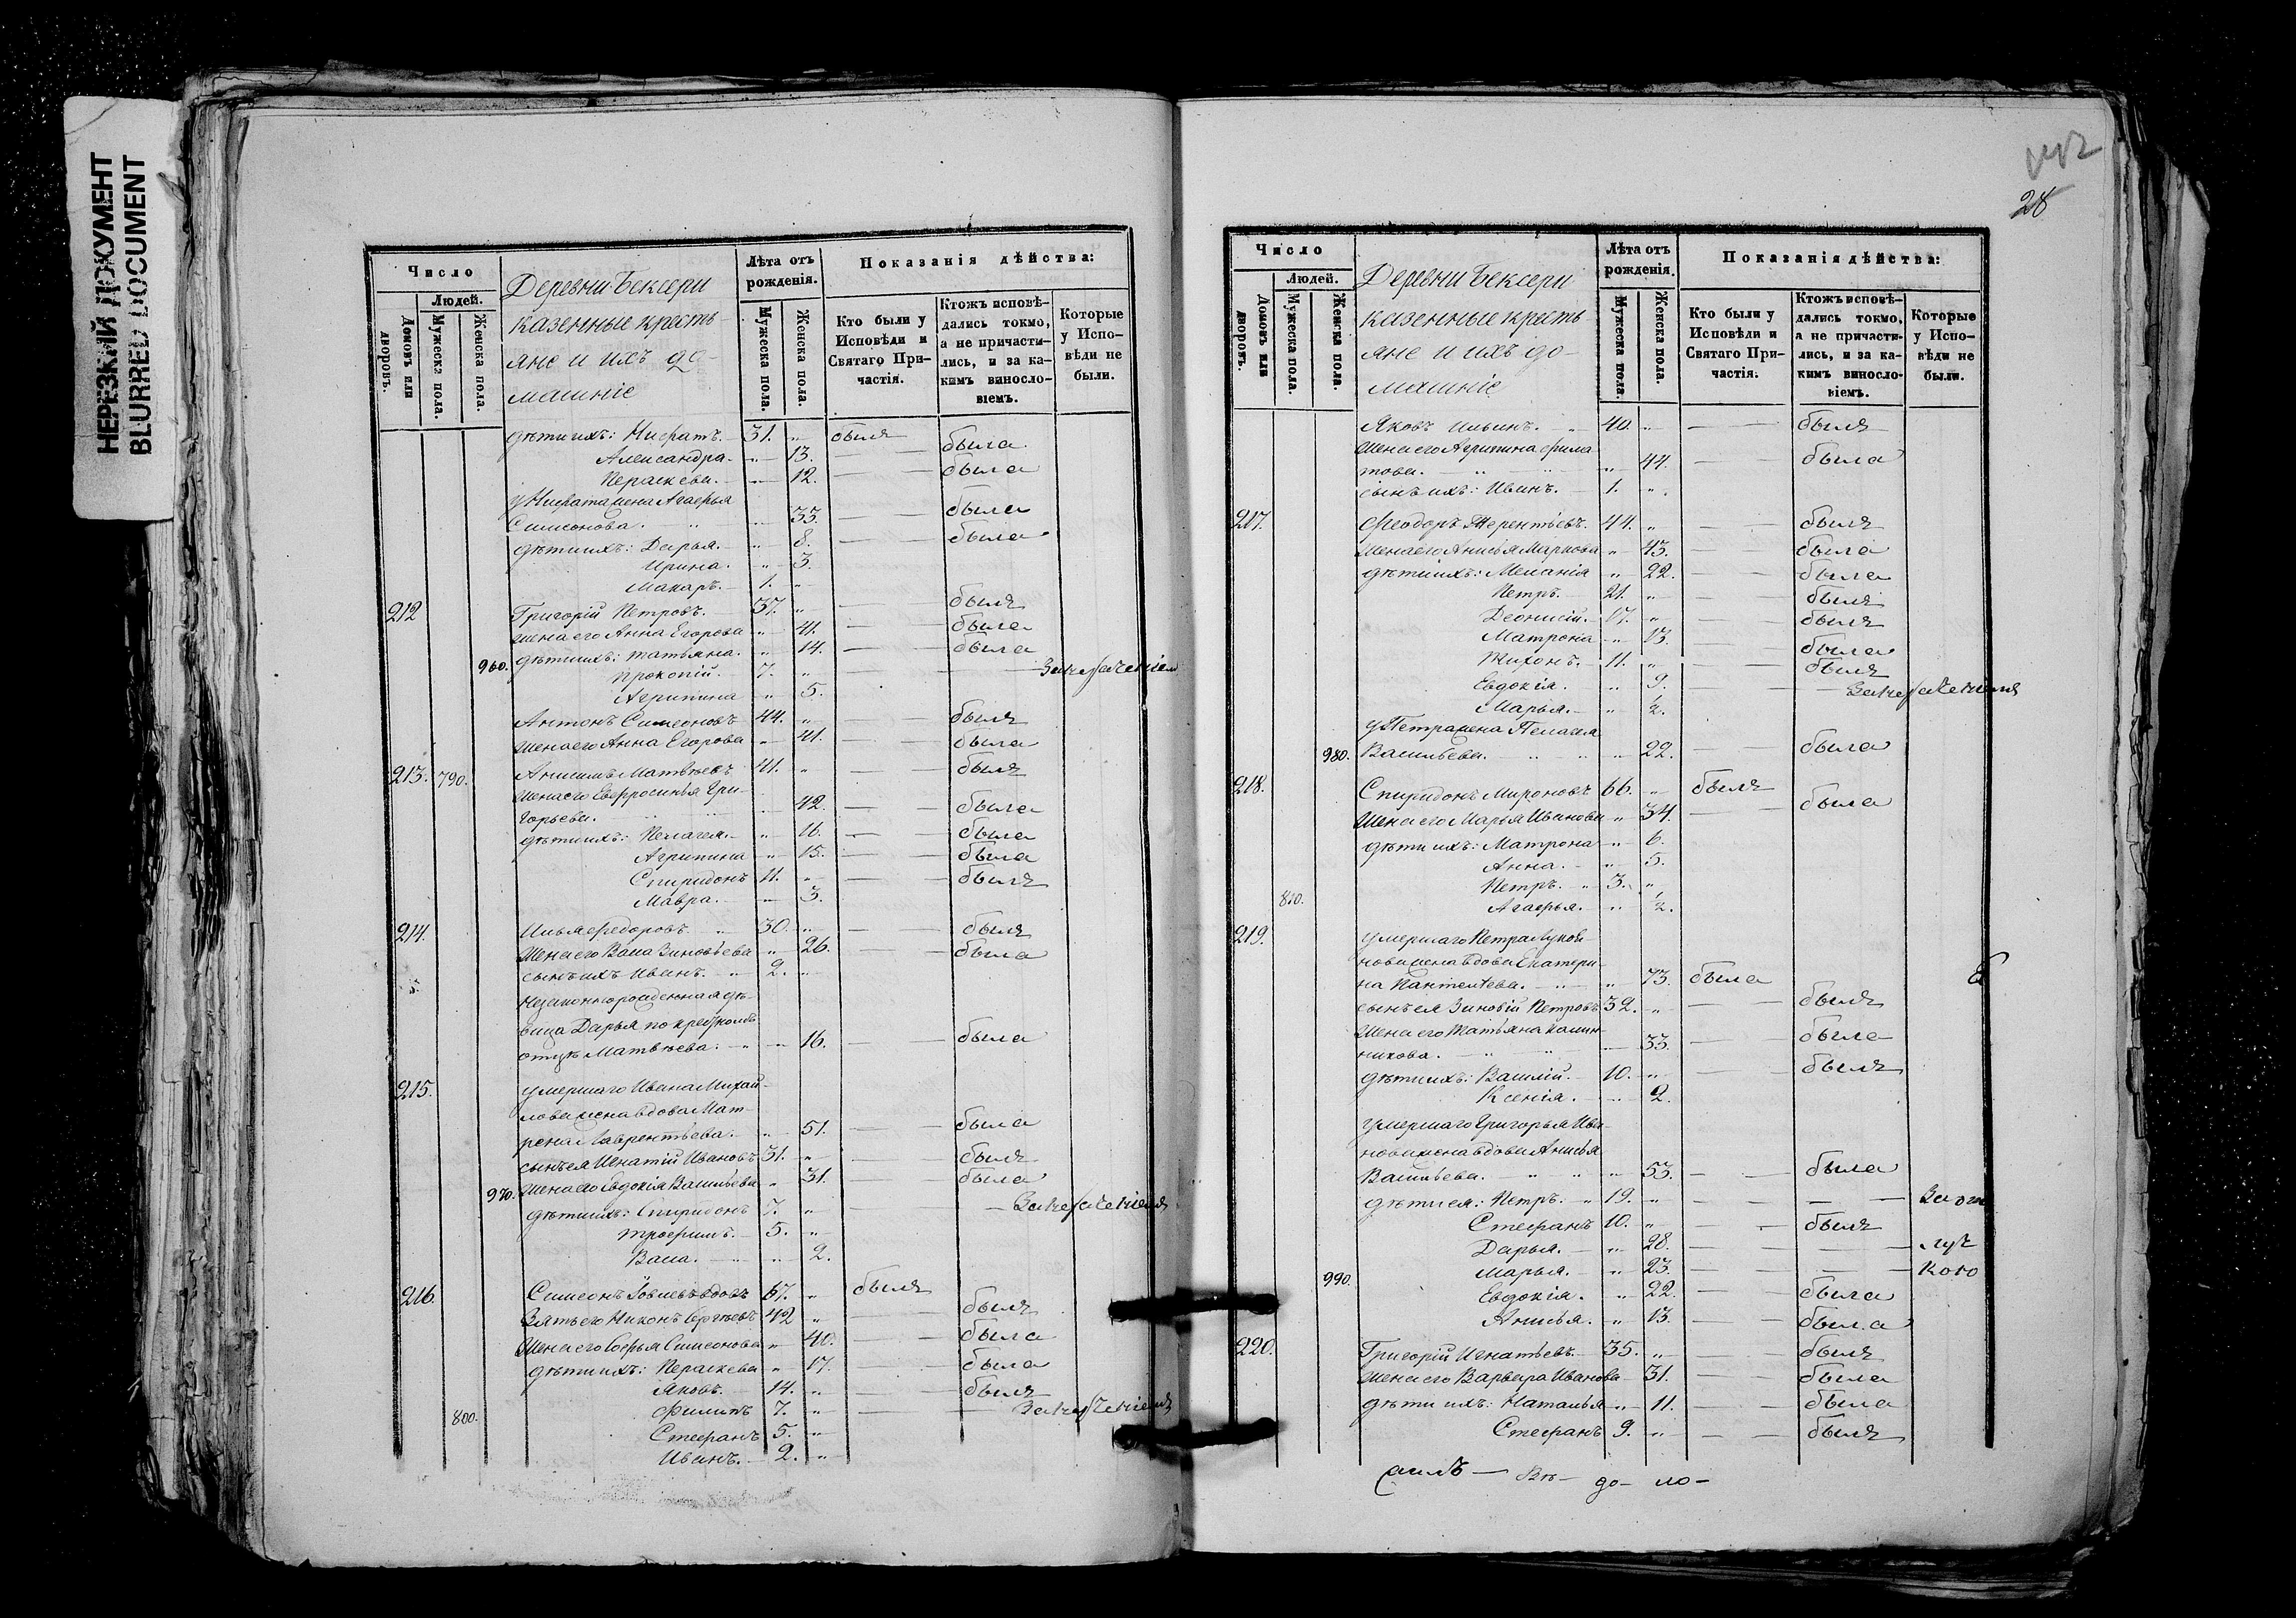 НЕРЕЗКИЙ ДОКУМЕНТ
BLURRED DOCUMENT
Число
Людей.
Домовъ или дворовъ.
Мужеска пола.
Женска пола.
Деревни Бексери
казенные кресть-
яне и ихъ до-
машніе
Лѣта отъ рожденія.
Мужеска пола.
Женска пола.
Показанія дѣйства:
Кто были у Исповѣди и Святаго Причастія.
Ктожъ исповѣ-
дались токмо,
а не причасти-
лись, и за ка-
кимъ виносло-
віемъ.
Которые у Испо-
вѣди не были.
дѣти ихъ: 31. „ былъ
Александра. „ 13. была
Параскева. 12. была
жена Агафья
Симеонова. 33. была
дѣти ихъ: Дарья. „ 8. была
Ирина. „ 3.
Макаръ. 1. „
212 Григорій Петровъ. 37. „ былъ
жена его Анна Егорова „ 41. была
960. дѣти ихъ: Татьяна. „ 14. была
Прокопій. 7. „
Агрипина „ 5.
Антонъ Симеоновъ 44. „ былъ
жена его Анна Егорова „ 41. была
213. 790. Анисимъ Матвѣевъ 41. „ былъ
жена его Евфросинья Гри-
горьева. 42. была
дѣти ихъ: Пелагея. „ 16. была
Агрипина „ 15. была
Спиридонъ 11. „ былъ
Мавра. 3.
214. Илья Федоровъ. 30. „ былъ
жена его Васса Зиновьева „ 26. была
сынъ ихъ Иванъ. 2. „
Незаконнорожденная дѣ-
вица Дарья по крестномъ
отцѣ Матвѣева. 16. была
215. умершаго Ивана Михай-
лова жена вдова Мат-
рена Лаврентьева. „ 51. была
сынъ ея Игнатій Ивановъ 31. „ былъ
970. жена его Евдокія Васильева „ 31. была
дѣти ихъ: Спиридонъ 7. „
Трофимъ. 5. „
Васса. „ 2.
216. Симеонъ вдовъ 67. „ былъ
Зять его Никонъ Сергѣевъ 42 „ былъ
жена его Софья Симеонова „ 40. была
дѣти ихъ: Параскева „ 17. была
Яковъ. 14. „ былъ
800. Филипъ 7. „
Стефанъ 5. „
Иванъ. 2. „
28
Число
Людей.
Домовъ или дворовъ.
Мужеска пола.
Женска пола.
Деревни Бексери
казенные кресть
яне и ихъ до-
машніе
Лѣта отъ рожденія.
Мужеска пола.
Женска пола.
Показанія дѣйства:
Кто были у Исповѣди и Святаго Причастія.
Ктожъ исповѣ-
дались токмо,
а не причасти-
лись, и за ка-
кимъ виносло-
віемъ.
Которые у Испо-
вѣди не были.
Яковъ Ильинъ. 40. „ былъ
жена его Агрипина Фила
това. „ 44. была
сынъ ихъ: Иванъ. 1. „
217. Феодоръ Терентьевъ. 44. „ былъ
жена его Анисья Маркова „ 43. была
дѣти ихъ: Меланія „ 22. была
Петръ. 21. „ былъ
Деонисій. 17. „ былъ
Матрона „ 13. была
Тихонъ. 11. „ былъ
Евдокія. „ 9.
Марья. „ ½.
у Петра жена Пелагея
980. Васильева. „ 22. была
218. Спиридонъ Мироновъ 66. „ былъ
жена его Марья Иванова „ 34. была
дѣти ихъ: Матрона „ 6.
Анна. „ 5.
Петръ. 3. „
810. Агафья. „ ½.
219. умершаго Петра
жена вдова Екатери-
на Пантелѣева. „ 73. была
сынъ ея Зиновій Петровъ 32. „ былъ
жена его Татьяна Калин-
никова. 33. была
дѣти ихъ: Василій. 10. „ былъ
Ксенія. „ 2.
умершаго Григорья Ива-
нова жена вдова Анисья
Васильева. „ 53. была
дѣти ея: Петръ. 19. „
Стефанъ 10. „ былъ
Дарья. „ 28.
990. Марья. „ 23.
Евдокія. „ 22. была
Анисья. „ 13. была
220. Григорій Игнатьевъ. 35. „ былъ
жена его Варвара Иванова 31. была
дѣти ихъ: Наталья „ 11. была
Стефанъ 9. „ былъ